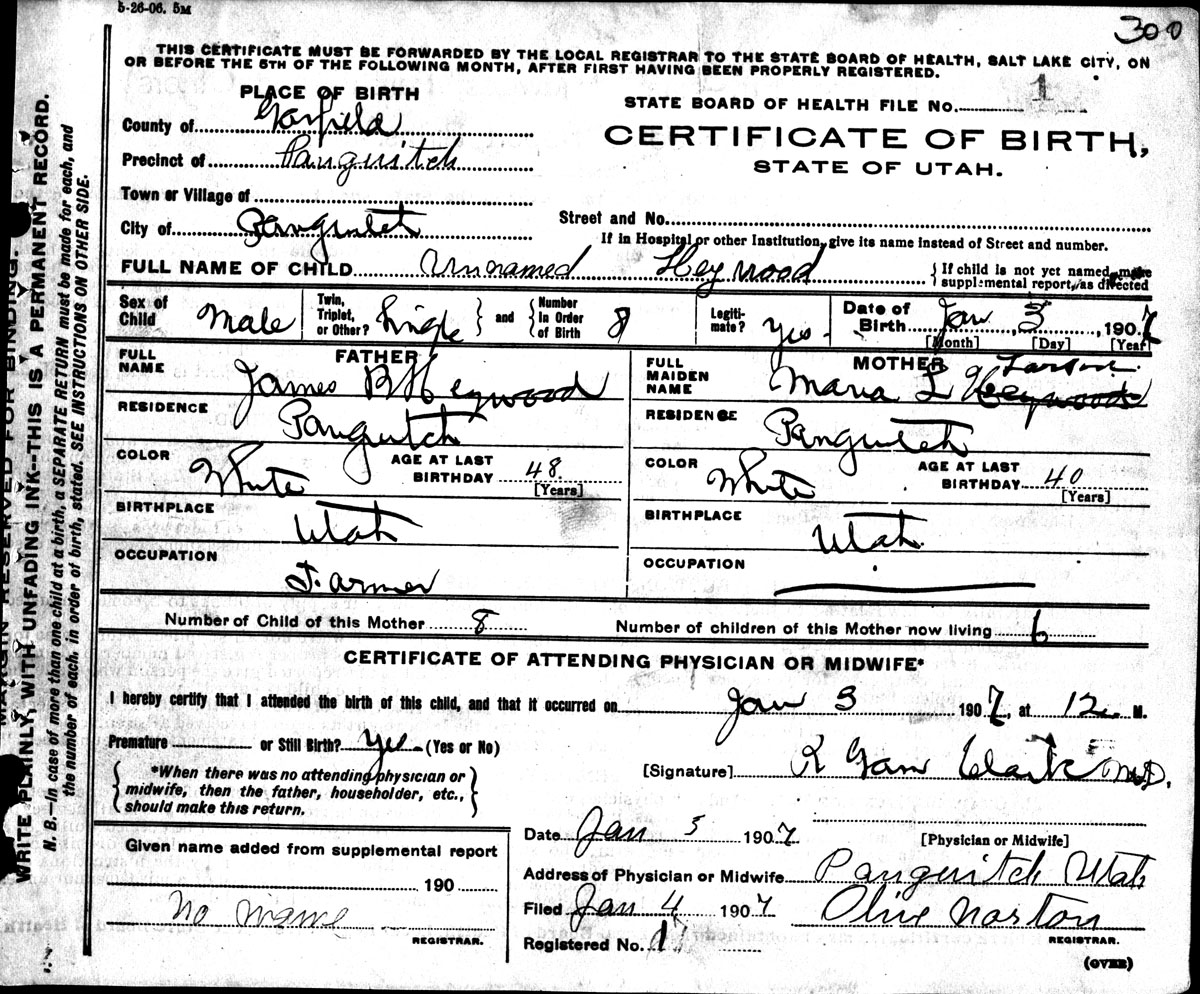 5-26-06. 5M
300
THIS CERTIFICATE MUST BE FORWARDED BY THE LOCAL REGISTRAR TO THE STATE BOARD OF HEALTH, SALT LAKE CITY, ON
OR BEFORE THE 5TH OF THE FOLLOWING MONTH, AFTER FIRST HAVING BEEN PROPERLY REGISTERED.
PLACE OF BIRTH
STATE BOARD OF HEALTH FILE No. 1
County of Garfield
CERTIFICATE OF BIRTH,
Precinct of Panguitch
STATE OF UTAH.
Town or Village of
Street and No.
City of Panguitch
If in Hospital or other Institution, give its name instead of Street and number.
FULL NAME OF CHILD Unnamed Heywood
{ If child is not yet named, make
supplemental report, as directed
Sex of Child Male
Twin, Triplet, or Other? Single } and { Number In Order of Birth 8
Legitimate? Yes
Date of Birth Jan 3, 1907
[Month] [Day] [Year]
FATHER
FULL NAME James B Heywood
RESIDENCE Panguitch
COLOR White
AGE AT LAST BIRTHDAY 48
[Years]
BIRTHPLACE Utah
OCCUPATION Farmer
MOTHER
FULL MAIDEN NAME Maria L Heywood
RESIDENCE Panguitch
COLOR White
AGE AT LAST BIRTHDAY 40
[Years]
BIRTHPLACE Utah
OCCUPATION
Number of Child of this Mother 8
Number of children of this Mother now living 6
CERTIFICATE OF ATTENDING PHYSICIAN OR MIDWIFE*
I hereby certify that I attended the birth of this child, and that it occurred on Jan 3 1907, at 12 M.
Premature or Still Birth? Yes (Yes or No)
{ *When there was no attending physician or
midwife, then the father, householder, etc.,
should make this return. }
[Signature] R Garn Clark M.D.
[Physician or Midwife]
Date Jan 3 1907
Address of Physician or Midwife Panguitch Utah
Filed Jan 4 1907 Olive Norton
REGISTRAR.
Registered No. 1
Given name added from supplemental report
190
No name
REGISTRAR.
(OVER)
MARGIN RESERVED FOR BINDING.
WRITE PLAINLY, WITH UNFADING INK--THIS IS A PERMANENT RECORD.
N. B.—In case of more than one child at a birth, a SEPARATE RETURN must be made for each, and
the number of each, in order of birth, stated. SEE INSTRUCTIONS ON OTHER SIDE.